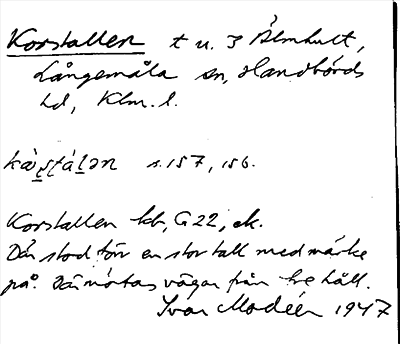 Korstallen t u. 3 Älmhult,
Långemåla sn, Handbörds
hd, Klm. l.
s. 157, 156.
Korstallen kb, G22, ek.
Där stod förr en stor tall med märke
på. Där mötas vägar från tre håll.
Ivar Modéer 1947